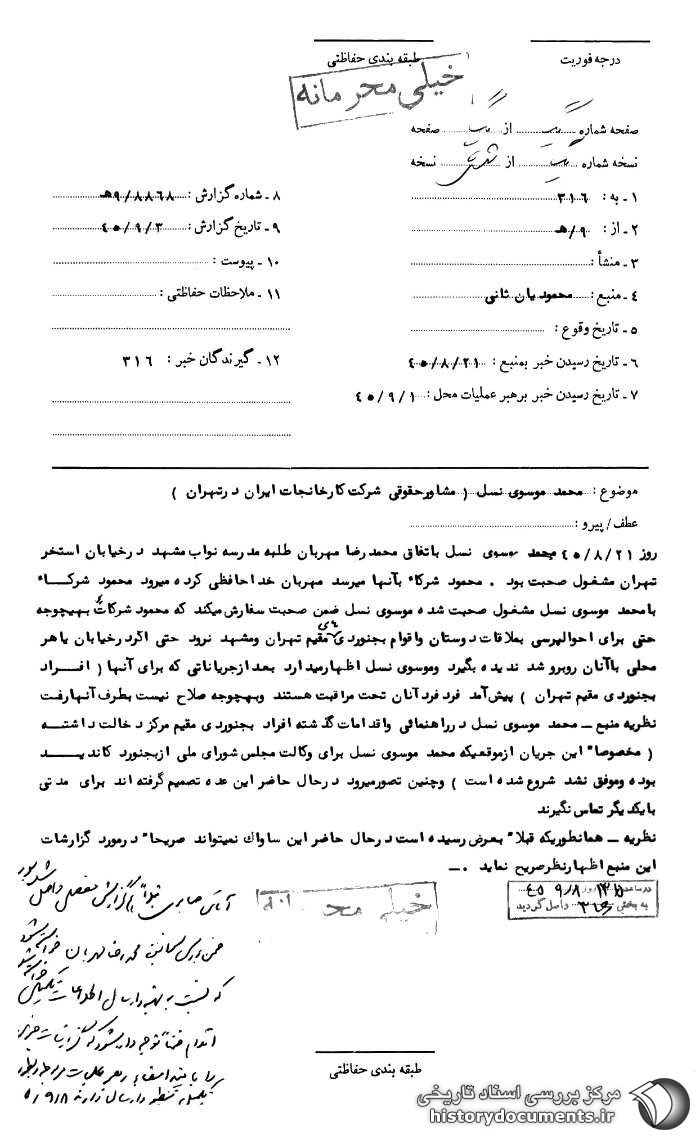 درجه فوریت
طبقه بندی حفاظتی
خیلی محرمانه
صفحه شماره یک از یک صفحه
نسخه شماره یک از نسخه
۱ ـ به : ۳۱۶
۲ ـ از : ۹/هـ
۳ ـ منشأ :
۴ ـ منبع : محمودیان ثانی
۵ ـ تاریخ وقوع :
۶ ـ تاریخ رسیدن خبر بمنبع : ۴۵/۸/۲۱
۷ ـ تاریخ رسیدن خبر برهبر عملیات محل : ۴۵/۹/۱
۸ ـ شماره گزارش : ۹/۸۸۶۸هـ
۹ ـ تاریخ گزارش : ۴۵/۹/۳
۱۰ ـ پیوست :
۱۱ ـ ملاحظات حفاظتی :
۱۲ ـ گیرندگان خبر : ۳۱۶
موضوع : محمد موسوی نسل ( مشاورحقوقی شرکت کارخانجات ایران درتهران )
عطف/ پیرو :
روز ۴۵/۸/۲۱ محمد موسوی نسل باتفاق محمدرضا مهربان طلبه مدرسه نواب مشهد درخیابان استخر
تهران مشغول صحبت بود . محمود شرکاء بآنها میرسد مهربان خداحافظی کرده میرود محمود شرکـــاء
بامحمد موسوی نسل مشغول صحبت شده موسوی نسل ضمن صحبت سفارش میکند که محمود شرکاء بهیچوجه
حتی برای احوالپرسی بملاقات دوستان واقوام بجنوردی مقیم تهران ومشهد نرود حتی اگردرخیابان یاهر
محلی باآنان روبرو شد ندیده بگیرد وموسوی نسل اظهارمیدارد بعدازجریاناتی که برای آنها ( افــراد
بجنوردی مقیم تهران ) پیش‌آمد فردفردآنان تحت مراقبت هستند وبهیچوجه صلاح نیست بطرف آنهارفت
نظریه منبع ـ محمد موسوی نسل درراهنمائی واقدامات گذشته افراد بجنوردی مقیم مرکز دخالت داشتــه
( مخصوصاً این جریان ازموقعیکه محمد موسوی نسل برای وکالت مجلس شورای ملی ازبجنورد کاندیــد
بوده وموفق نشد شروع شده است ) وچنین تصورمیرود درحال حاضر این عده تصمیم گرفته اند برای مدتی
بایکدیگر تماس نگیرند
نظریه ـ همانطوریکه قبلاً بعرض رسیده است درحال حاضر این ساواک نمیتواند صریحاً درمورد گزارشات
این منبع اظهارنظرصریح نماید . ـ
در ساعت ۱۲۱۵ روز ۴۵/۹/۸
به بخش ۳۱۶ واصل گردید
خیلی محرمانه
آقای صابری گزارش مفصلی واصل شده بود
ضمن بررسی محمدرضا مهربان خواسته شود
که نسبت به تهیه و ارسال اطلاعات تکمیلی
اقدام ضمناً توجه داده شود که گزارشات خبری
را با امضاء رهبر عملیات
۴۵/۹/۸
طبقه بندی حفاظتی
مرکز بررسی اسناد تاریخی
historydocuments.ir